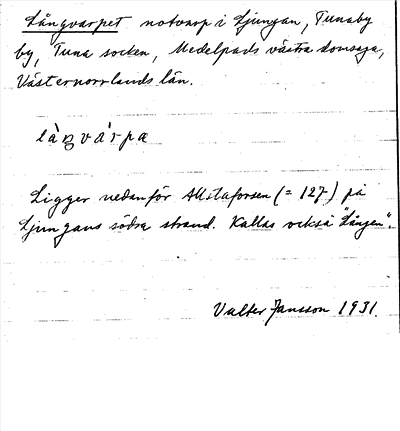 Långvarpet notvarp i Ljungan, Tunaby
by, Tuna socken, Medelpads västra domsaga,
Västernorrlands län.
lằŋvàrpa
Ligger nedanför Allstaforsen (= 127) på
Ljungans södra strand. Kallas också "Lången".
Valter Jansson 1931.